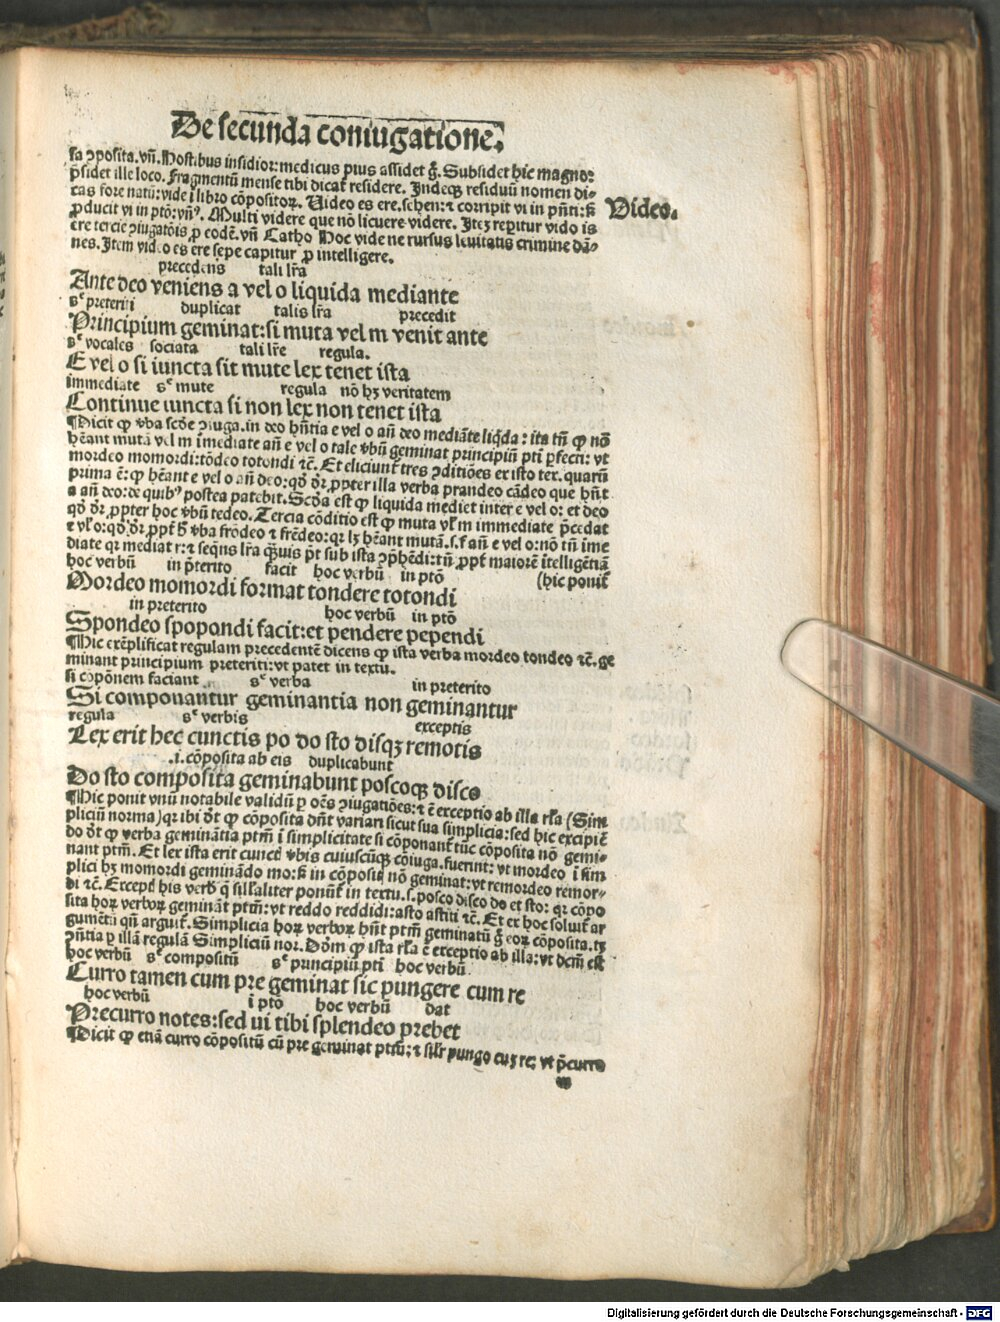 De secunda coniugatione.
sa ↄposita. vñ. Hostibus insidior: medicus pius assidet ḡ. Subsidet hic magnos
p̄sidet ille loco. Fragmentū mense tibi dicat residere. Indeqȝ residuū nomen di⸗
cas fore natū: vide ī libro cōpositoꝝ. Uideo es ere. sehen: ⁊ corripit vi in pn̄ti: s̄ꝫ
Video.
ꝓducit vi in ptō: vñꝰ. Multi videre que nō licuere videre. Iteꝫ reꝑitur vido is
ere tercie ↄiugatōis ꝓ codē. vñ Catho Hoc vide ne rursus leuitatis crimine dā⸗
nes. Item video es ere sepe capitur ꝓ intelligere.
precedens tali lr̄a
Ante deo veniens a vel o liquida mediante
sᶜ preteriti duplicat talis lr̄a precedit
Principium geminat: si muta vel m venit ante
sᶜ vocales sociata tali lr̄e regula.
E vel o si iuncta sit mute lex tenet ista
immediate sᶜ mute regula nō hꝫ veritatem
Continue iuncta si non lex non tenet ista
¶Dicit ꝙ v̄ba scd̄e ↄiuga. in deo hn̄tia e vel o añ deo mediāte liq̄da: ita tñ ꝙ nō
hēant mutā vel m īmediate añ e vel o tale v̄bū geminat principiū pt̄i ꝑfecti: vt
mordeo momordi: tōdeo totondi ⁊c̄. Et eliciunt̄ tres ↄditiōes ex isto tex. quarū
prima ē: ꝙ hēant e vel o añ deo: qd̄ dr̄ ꝓpter illa verba prandeo cādeo que hn̄t
a añ deo: de quibꝰ postea patebit. Scd̄a est ꝙ liquida mediet inter e vel o: et deo
qd̄ dr̄ ꝓpter hoc v̄bū tedeo. Tercia cōditio est ꝙ muta vl̓ m immediate p̄cedat
e vl̓ o: qd̄ dr̄ ꝓpt̄ h̄ v̄ba frōdeo ⁊ frēdeo: qꝛ lꝫ hēant mutā. s. f añ e vel o: nō tñ īme
diate qꝛ mediat r: ⁊ seq̄ns lr̄a q̄ꝫuis p̄t sub ista ↄp̄hēdi: tñ ꝓpt̄ maiorē ītelligētiā
(hic ponit̄
hoc verbū in p̄terito facit hoc verbū in ptō
Mordeo momordi format tondere totondi
in preterito hoc verbū in ptō
Spondeo spopondi facit: et pendere pependi
¶Hic exēplificat regulam precedentē dicens ꝙ ista verba mordeo tondeo ⁊c̄. ge
minant principium preteriti: vt patet in textu.
si cōponem faciant sᶜ verba in preterito
Si componantur geminantia non geminantur
regula sᶜ verbis exceptis
Lex erit hec cunctis po do sto disqꝫ remotis
.i. cōposita ab eis duplicabunt
Do sto composita geminabunt poscoqꝫ disco
¶Hic ponit vnū notabile validū ꝑ oēs ↄiugatiōes: ⁊ ē exceptio ab illa rl̓a (Sim
pliciū norma) qꝛ ibi dr̄ ꝙ cōposita dn̄t variari sicut sua simplicia: sed hic excipit̄
do dr̄ ꝙ verba geminātia ptm̄ ī simplicitate si cōponant̄ tūc cōposita nō gemi⸗
nant ptm̄. Et lex ista erit cunct̄ v̄bis cuiuscūqꝫ cōiuga. fuerint: vt mordeo ī sim
plici hꝫ momordi geminādo mo: s̄ꝫ in cōposit̄ nō geminat: vt remordeo remor⸗
di ⁊c̄. Except̄ his verb̄ q̄ sil̓r aliter ponūt̄ in textu. s. posco disco do et sto: qꝛ cōpo
sita hoꝝ verboꝝ geminant̄ ptm̄: vt reddo reddidi: asto astiti ⁊c̄. Et ex hoc soluit̄ ar
gumētū qñ arguit̄. Simplicia hoꝝ verboꝝ hn̄t ptm̄ geminatū ḡ eoꝝ cōposita. tꝫ
ↄn̄tia ꝑ illā regulā Simpliciū nor. Dd̄m ꝙ ista rl̓a ē exceptio ab illa: vt dcm̄ est
hoc verbū sᶜ compositū sᶜ principiū pt̄i hoc verbū
Curro tamen cum pre geminat sic pungere cum re
hoc verbū ī ptō hoc verbū dat
Precurro notes: sed ui tibi splendeo prebet
¶Dicit ꝙ etiā curro cōpositū cū pre geminat ptm̄: ⁊ sil̓r pungo cuꝫ re: vt p̄curro
m
Digitalisierung gefördert durch die Deutsche Forschungsgemeinschaft - DFG